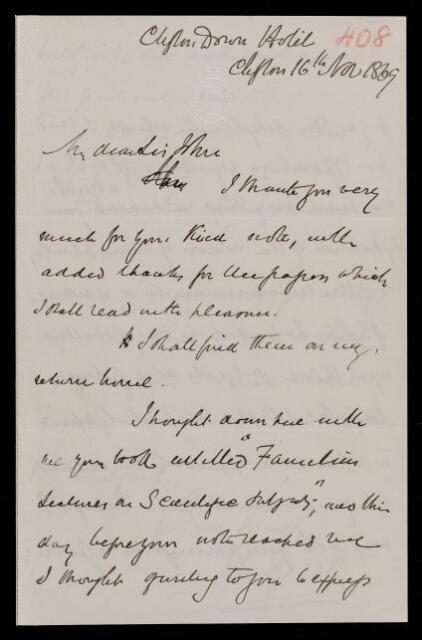 Clifton Down Hotel 408
Clifton 16th Nov 1869
My dear Sir John
I thank you very
much for your kind note, with
added thanks for the papers which
I shall read with pleasure.
I shall find them on my
return home.
I brought down here with
me your book entitled "Familiar
Lectures on Scientific Subjects", and the
day before your note reached me
I thought of writing to you to express